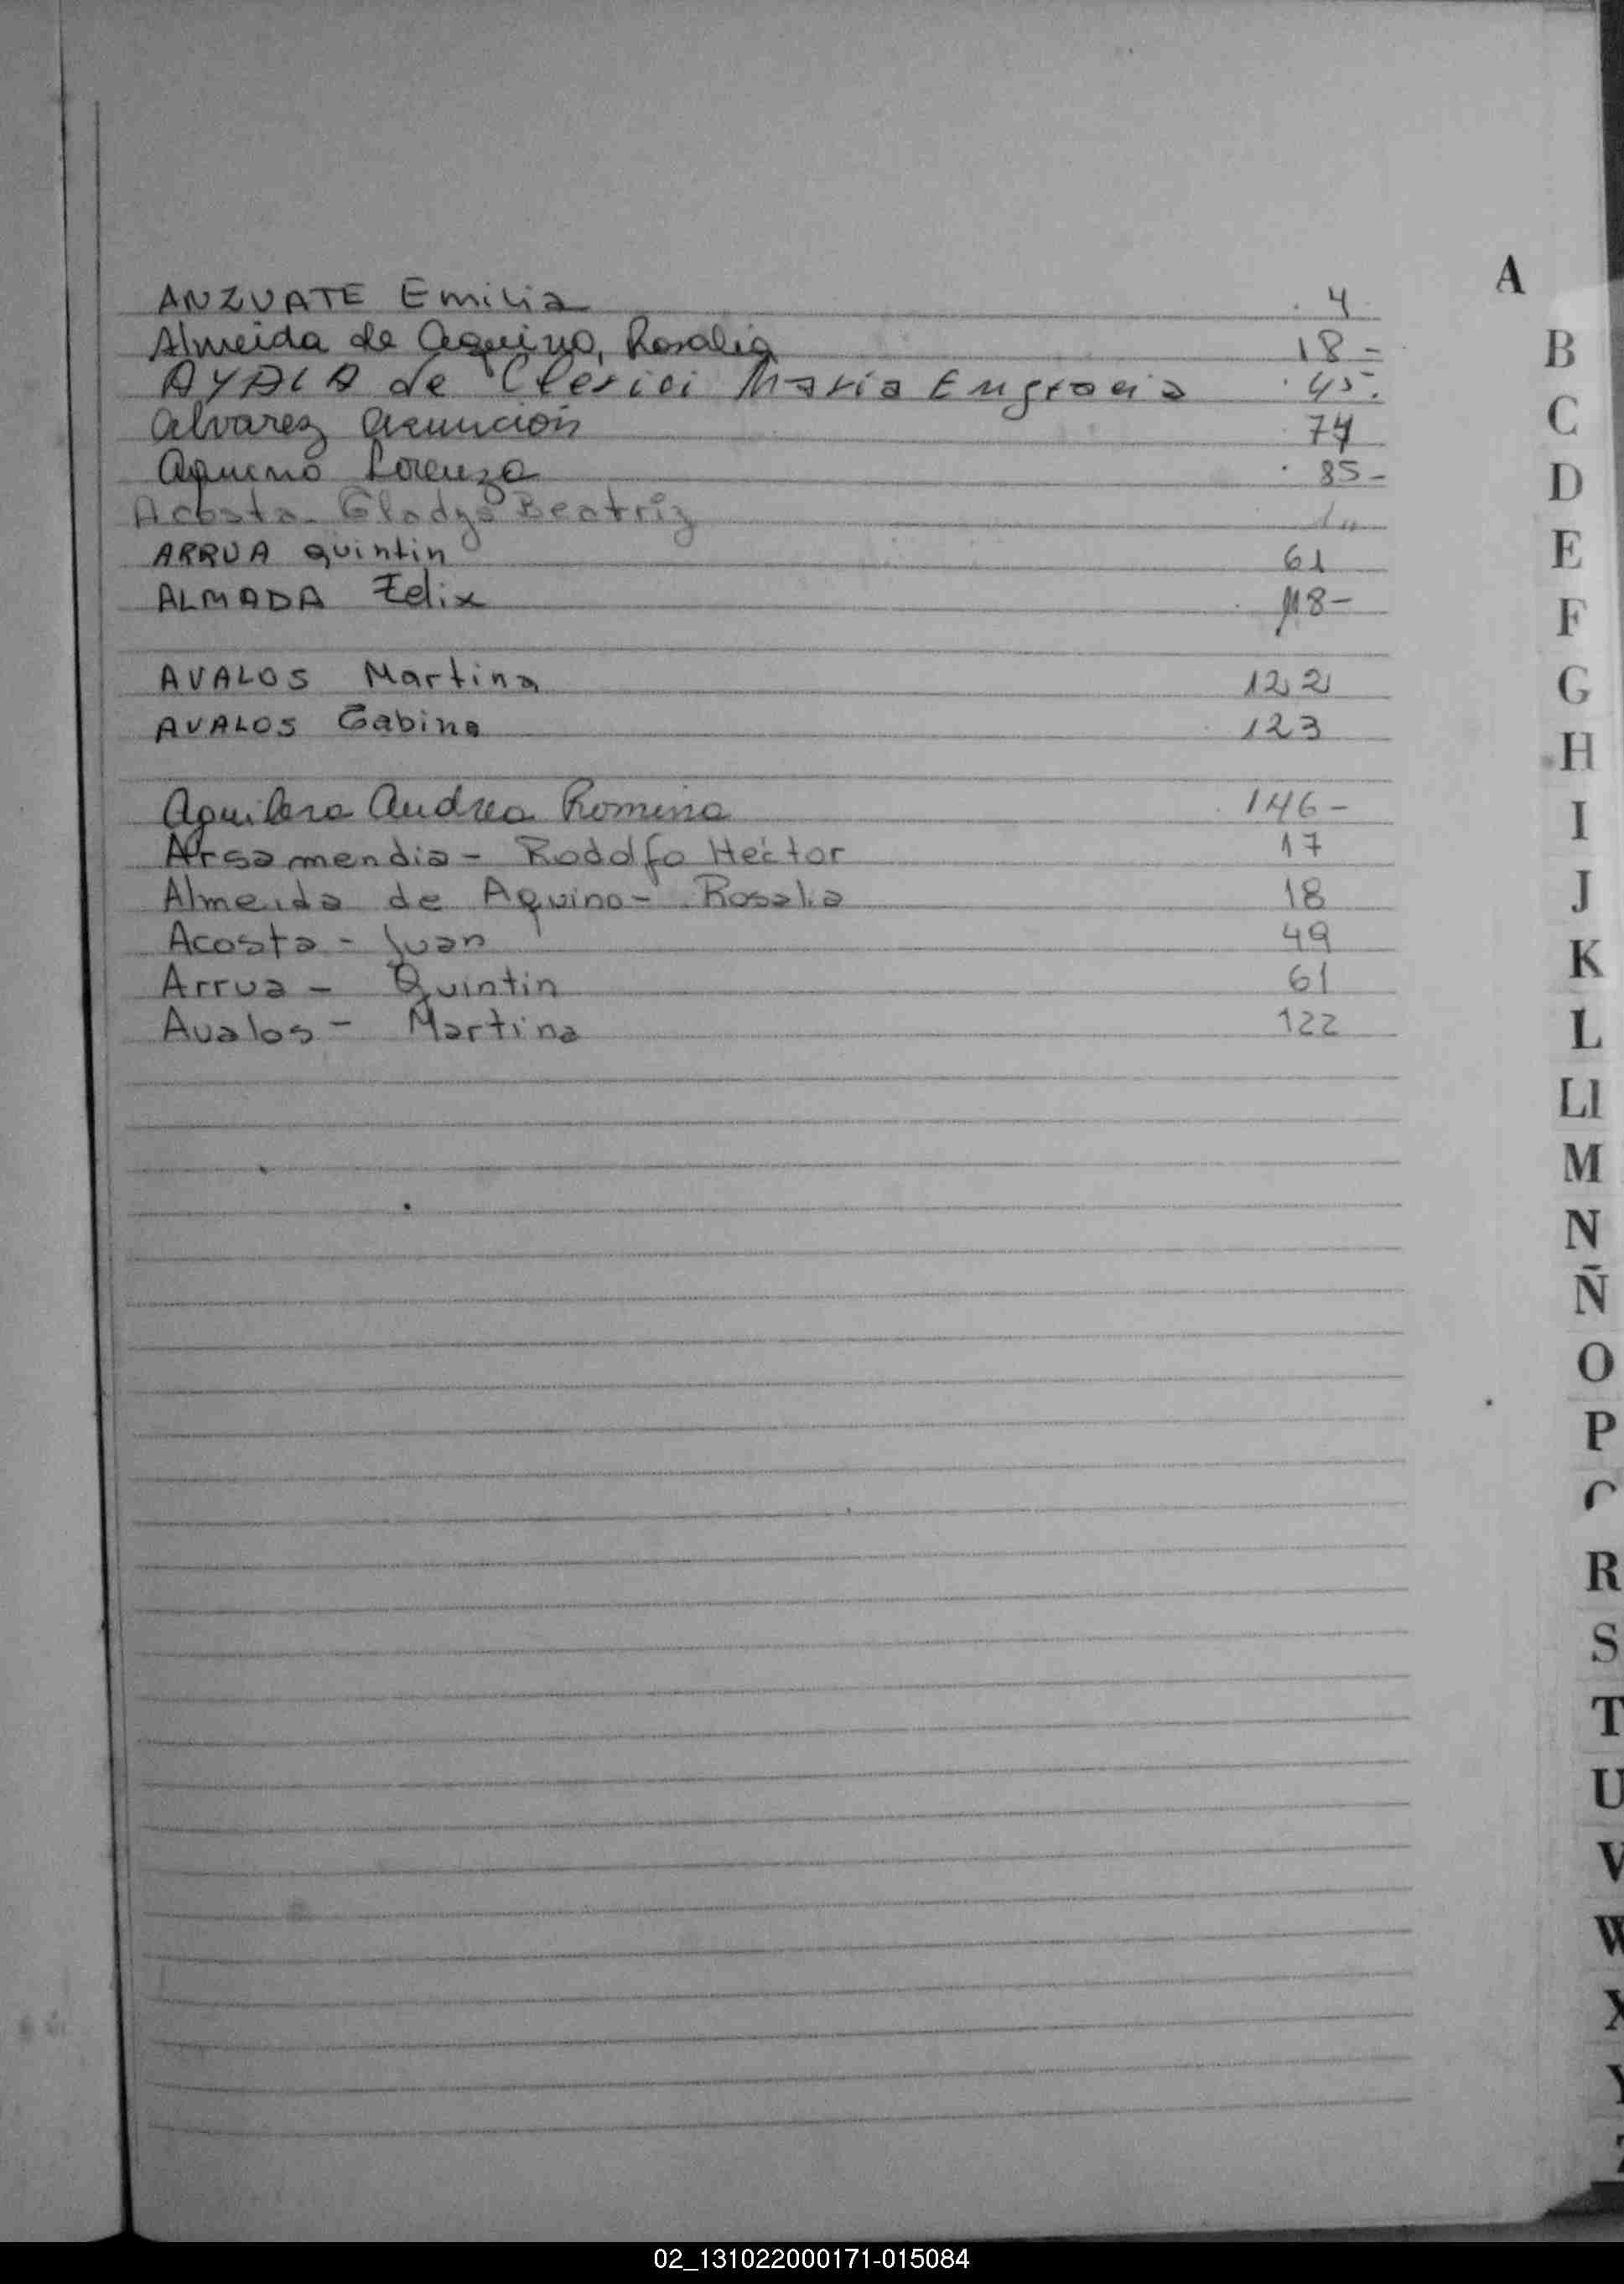 A
ANZUATE Emilia 4
Almeida de Aquino, Rosalia 18-
AYALA de Clerici Maria Engracia 45.
Alvarez Asunción 74
Aquino Lorenzo 85-
Acosta Gladys Beatriz 1"
ARRUA Quintin 61
ALMADA Felix 118-
AVALOS Martina 122
AVALOS Gabino 123
Aguilera Andrea Romina 146-
Arsamendia - Rodolfo Hector 17
Almeida de Aquino - Rosalia 18
Acosta - Juan 49
Arrua - Quintin 61
Avalos - Martina 122
B
C
D
E
F
G
H
I
J
K
L
Ll
M
N
Ñ
O
P
R
S
T
U
V
W
X
Y
02_131022000171-015084